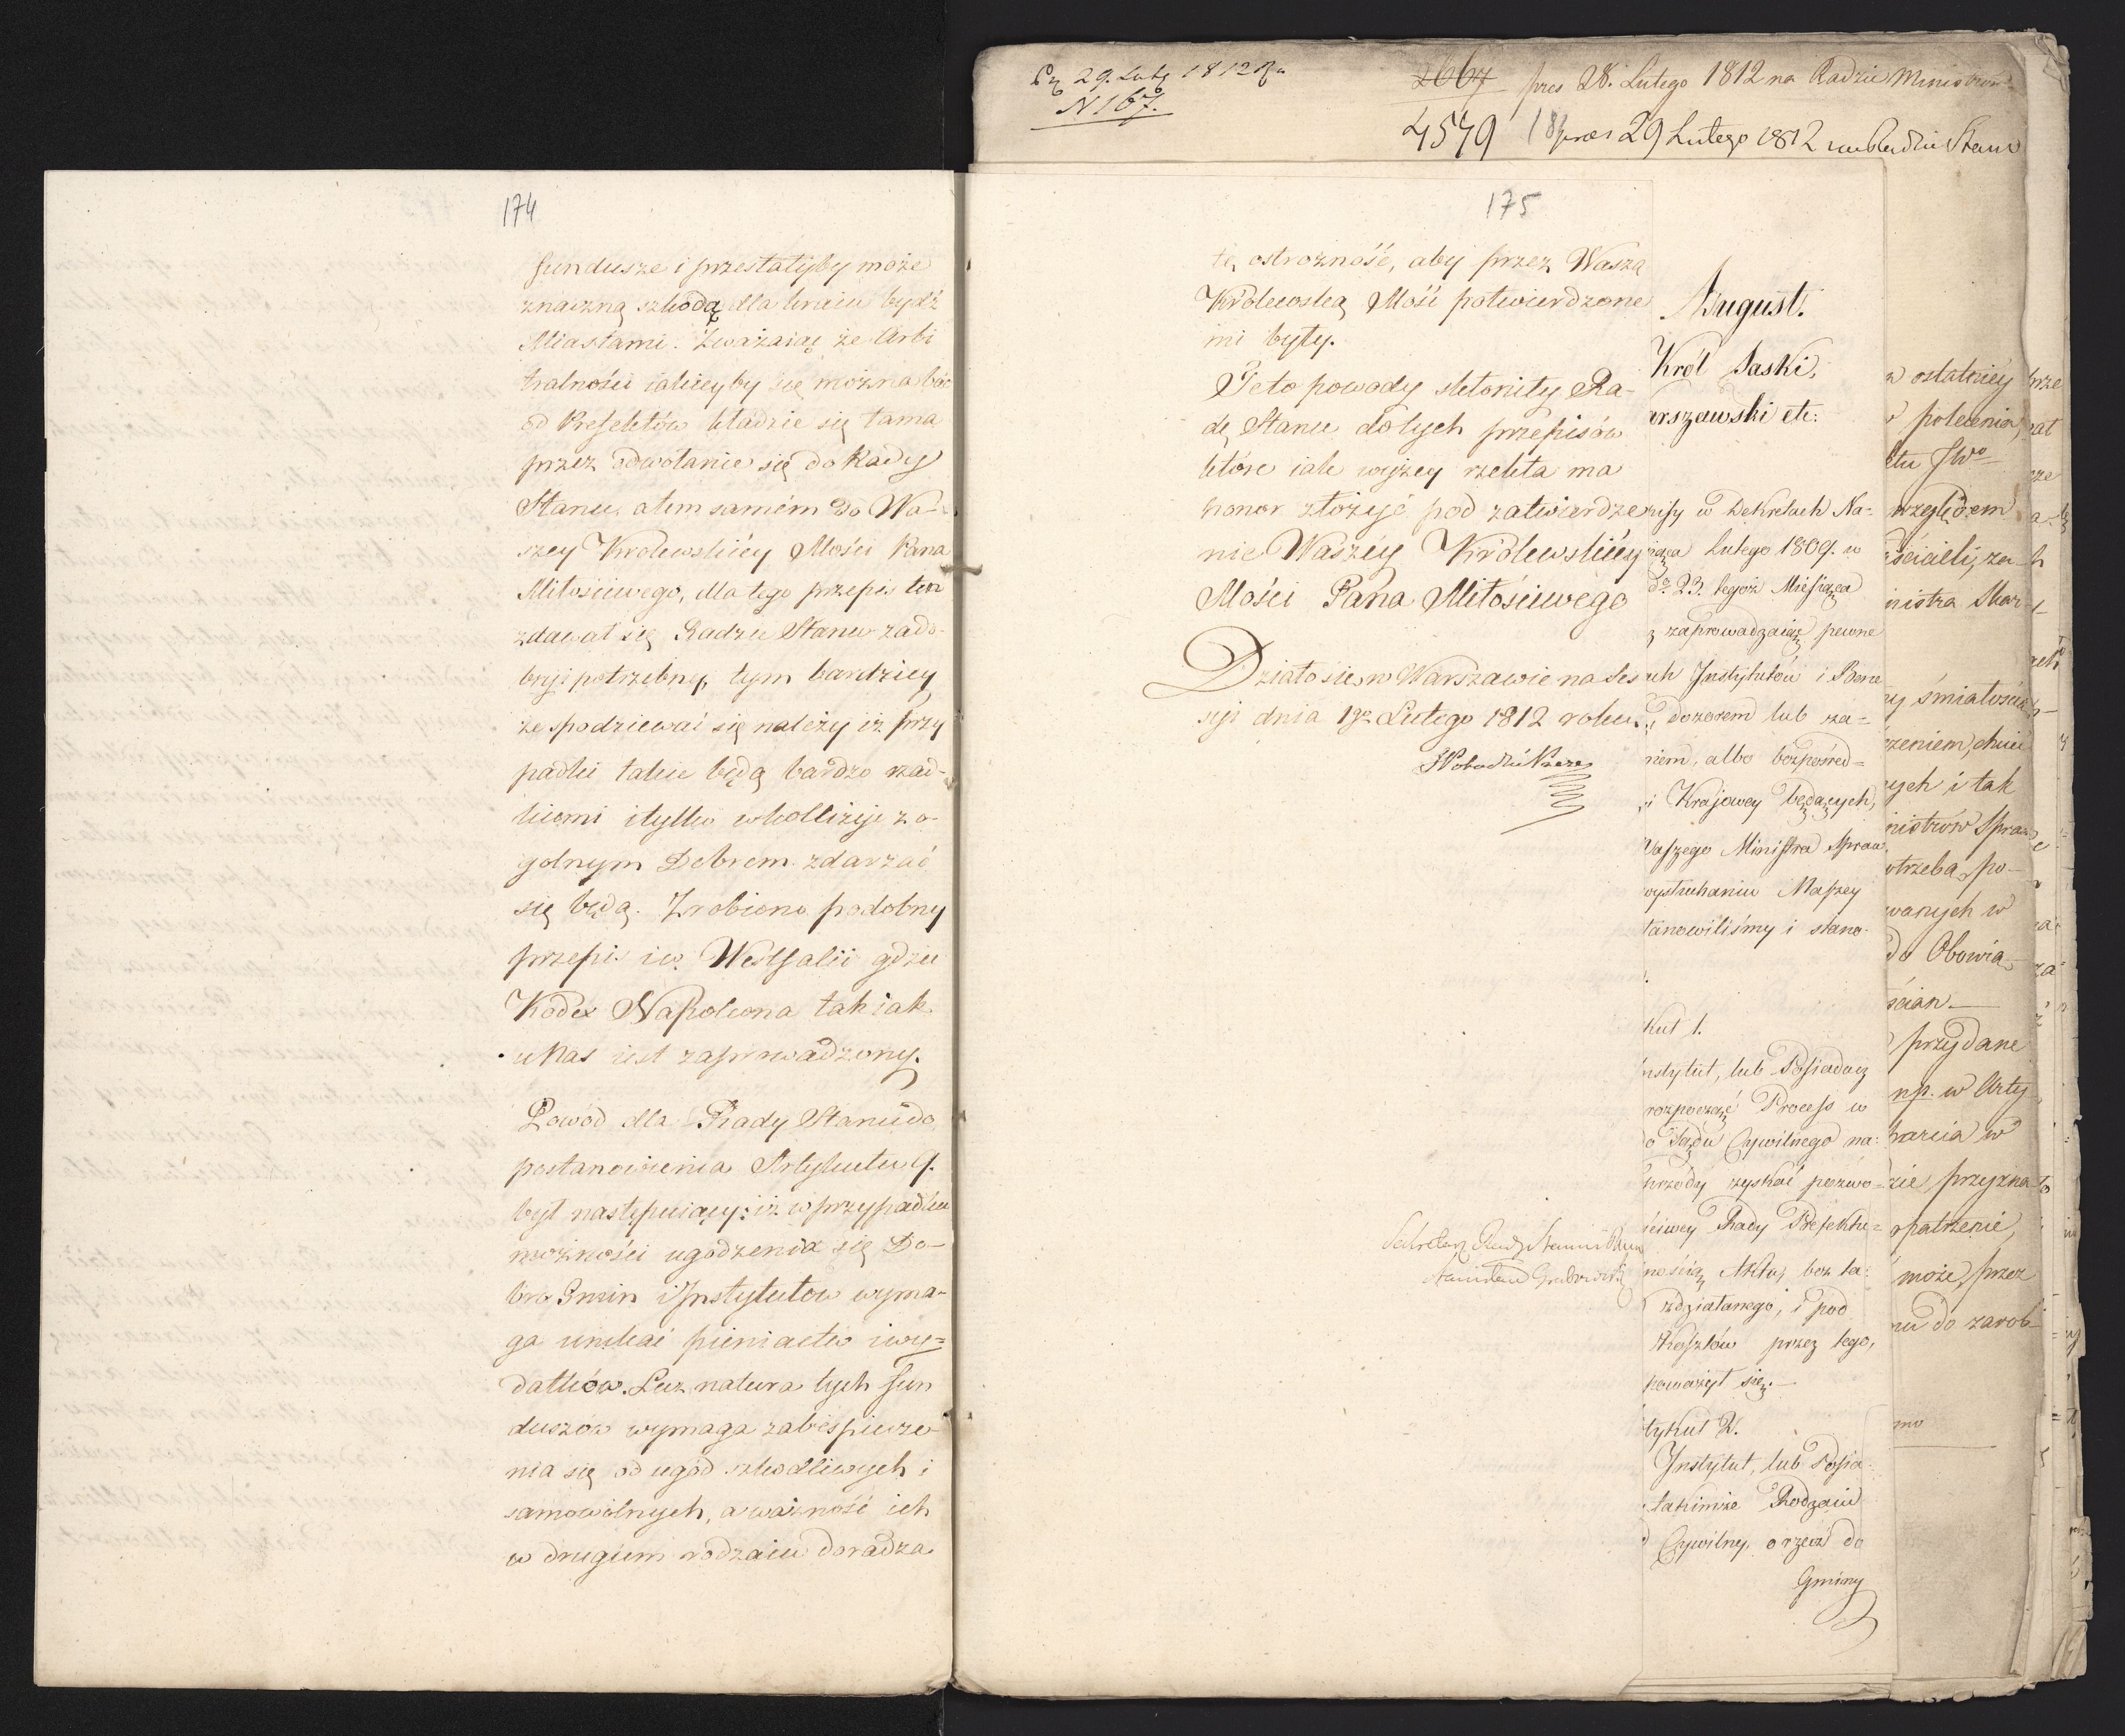 174
fundusze i przestałyby może
znaczną szkodą dla kraiu bydź
Miastami. Zważaiąc że Arbi
tralności iakieyby się można bać
od Prefektów kładzie się tama
przez odwołanie się do Rady
Stanu, atem samém do Wa-
szey Królewskiéy Mości Pana
Miłościwego, dla tego przepis ten
zdawał się Radzie Stanu zado-
bry i potrzebny, tym bardziey
że spodziewać się należy iż przy
padki takie będą bardzo rzad-
kiemi i tylko w kollizyi z o-
golnym Dobrem zdarzać
się będą. Zrobiono podobny
przepis i w Westfalii gdzie
Kodex Napoleona tak iak
u Nas iest zaprowadzony.
Powód dla Rady Stanu do
postanowienia Artykułu 9.
był następuiący: iż w przypadku
możności ugodzenia się Do-
bro Gmin i Instytutow wyma-
ga unikać pieniactw i wy=
datków. Lecz natura tych fun
duszów wymaga zabespiecze-
nia się od ugod szkodliwych i
samowolnych, a ważność ich
w drugim rodzaiu doradza
29. Luty 1812
N 167.
2667 pres 28. Lutego 1812 na Radzie Ministrów
4579 pres 29 Lutego 1812 na Radzie Stanu
175
tę ostrożność, aby przez Waszą
Królewską Mość potwierdzone
mi były.
Te to powody skłoniły Ra-
dę Stanu do tych przepisów
które iak wyżey rzekła ma
honor złożyć pod zatwierdze
nie Waszéy Królewskiéy
Mości Pana Miłościwego
Działo się w Warszawie na Ses
syi dnia 19go Lutego 1812 roku.
Sekretarz Rady Stanu
Stanisław Grabowski
August.
Król Saski,
arszawski etc:
pisy w Dekretach Na-
Lutego 1809. w
do 23. tegoż Miesiąca
zaprowadzaiąc pewne
uch Instytutów i Bene
dozorem lub za-
niem, albo bezpośred=
i Krajowey będących,
Naszego Ministra Spraw
wysłuchaniu Naszey
tanowiliśmy i stano-
kuł 1.
nstytut, lub Posiadacz
rozpocząć Process w
o Sądu Cywilnego na:
przódy zyskać pozwo-
ściwey Rady Prefektu=
nością Aktu, bez ta:
zdziałanego, i pod
Kosztów przez tego,
poważył się.—
tykuł 2.
Instytut, lub Posia-
takimże Rodzaiu
d Cywilny, o rzecz do
Gminy
w ostatniéy
polecenia,
ktu JWo
względem
ścicieli, za-
nistra Skar-
ey śmiałości
zeniem, chcieć
ych i tak
nistrów Spraw
otrzeba, po-
wanych w
do Obowią-
ścian—
przydane
np. w Arty
parcia w
zie, przyzna-
opatrzenie,
może, przez
mu do zarob-